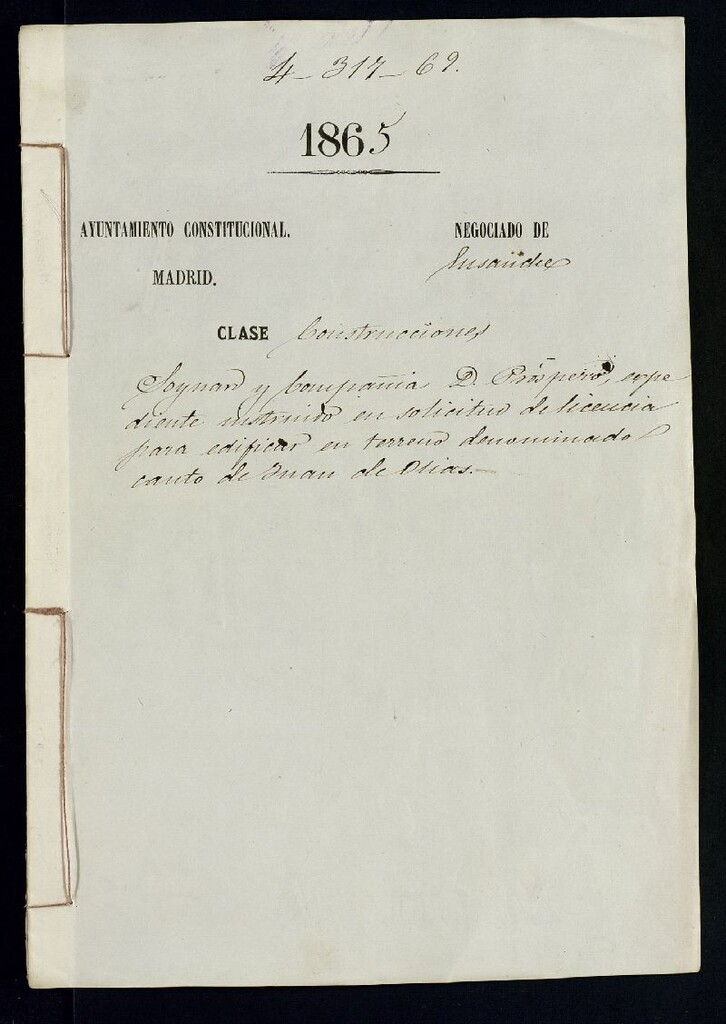 4-317-69.
1865
AYUNTAMIENTO CONSTITUCIONAL.
MADRID.
NEGOCIADO DE
Ensanche
CLASE Construcciones
y Compañia D. Próspero, espe
diente instruido en solicitud de licencia
para edificar en terreno denominado
canto de Juan de Olias.